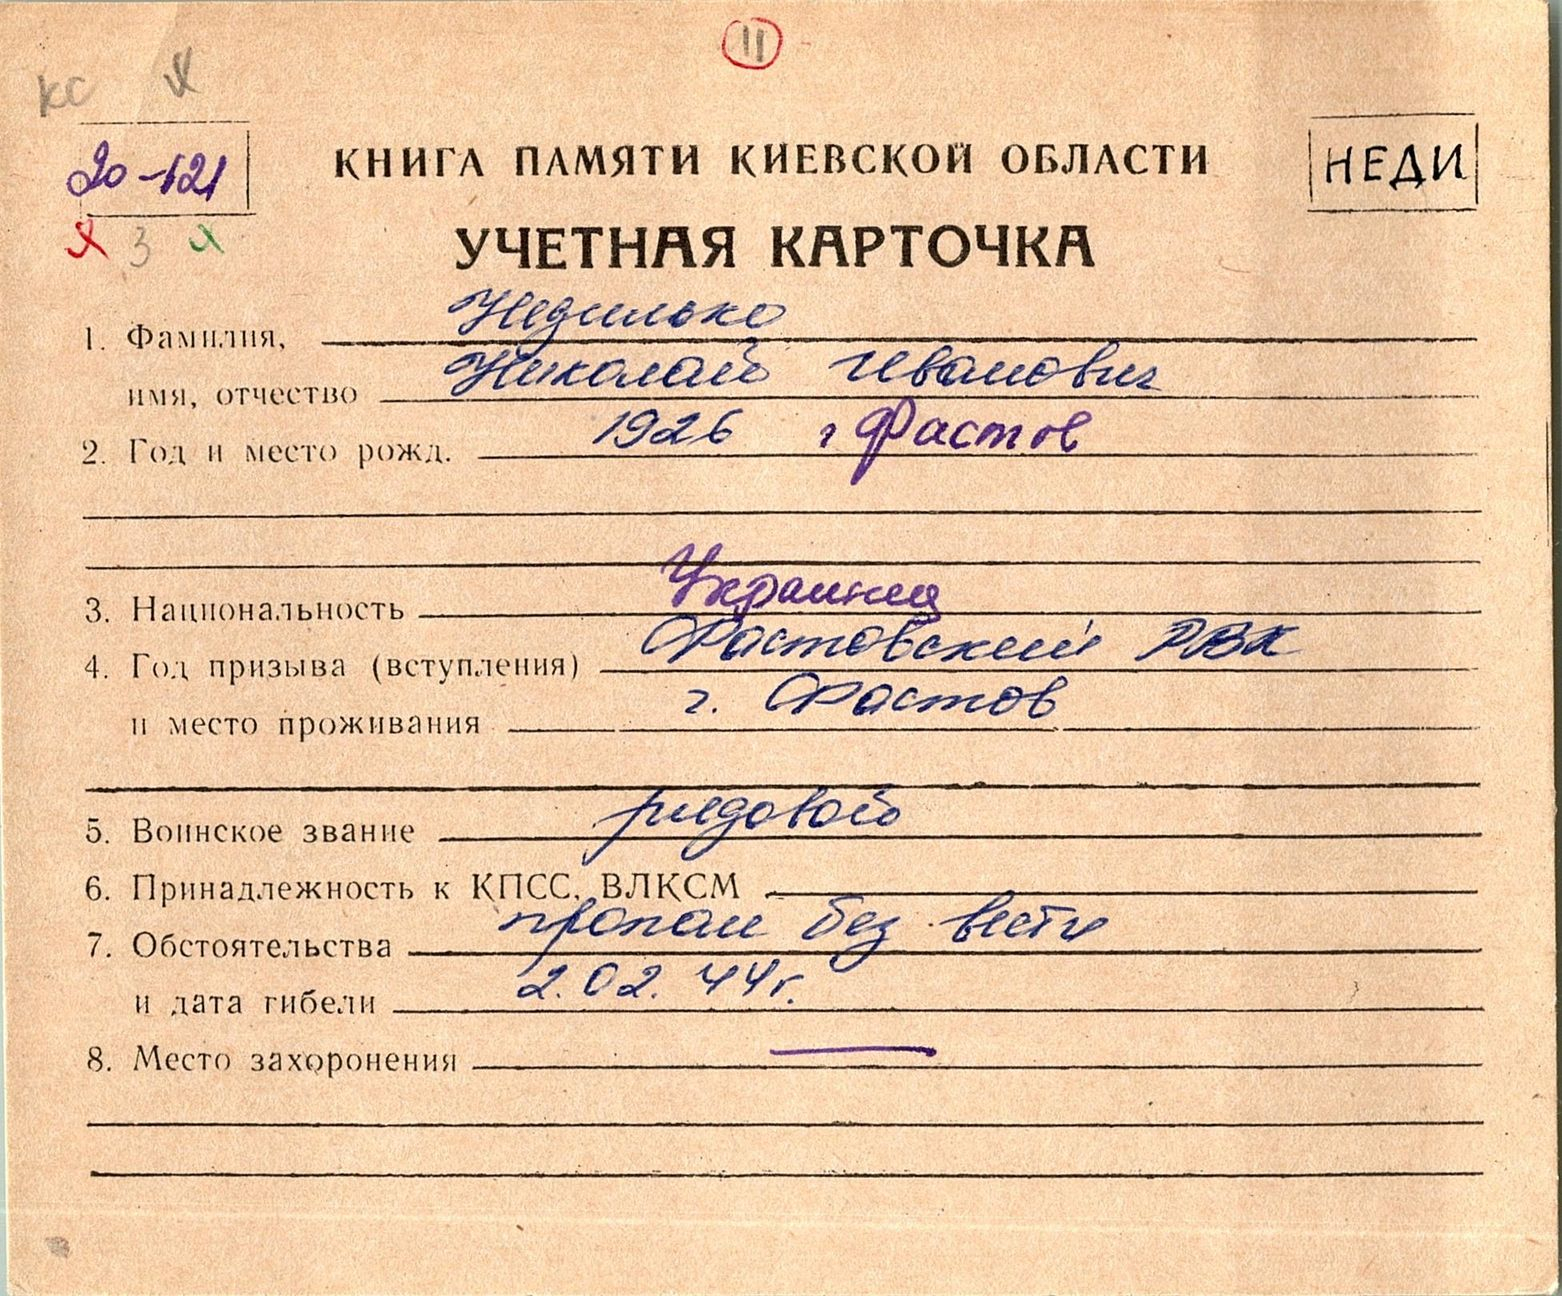 11
КС
20-121
КНИГА ПАМЯТИ КИЕВСКОЙ ОБЛАСТИ
НЕДИ
3
УЧЕТНАЯ КАРТОЧКА
1. Фамилия, Недилько
имя, отчество Николай Иванович
2. Год и место рожд. 1926 г Фастов
3. Национальность Украинец
4. Год призыва (вступления) Фастовский РВК
и место проживания г. Фастов
5. Воинское звание рядовой
6. Принадлежность к КПСС, ВЛКСМ
7. Обстоятельства пропал без вести
и дата гибели 2.02.44г.
8. Место захоронения —